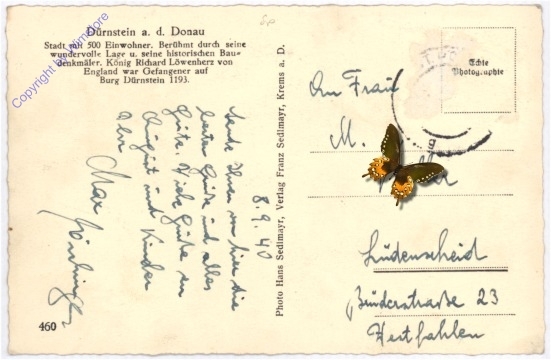 Dürnstein a. d. Donau
Stadt mit 500 Einwohner. Berühmt durch seine
wundervolle Lage u. seine historischen Bau-
denkmäler. König Richard Löwenherz von
England war Gefangener auf
Burg Dürnstein 1193.
Copyright by mimatore
8.9.40
Sende Ihnen von hier die
besten Grüße und alles
Gute. Viele Grüße an
und Kinder
Ihr
Max
460
Photo Hans Sedlmayr, Verlag Franz Sedlmayr, Krems a. D.
Echte
Photographie
An Frau
M.
Lüdenscheid
23
Westfahlen